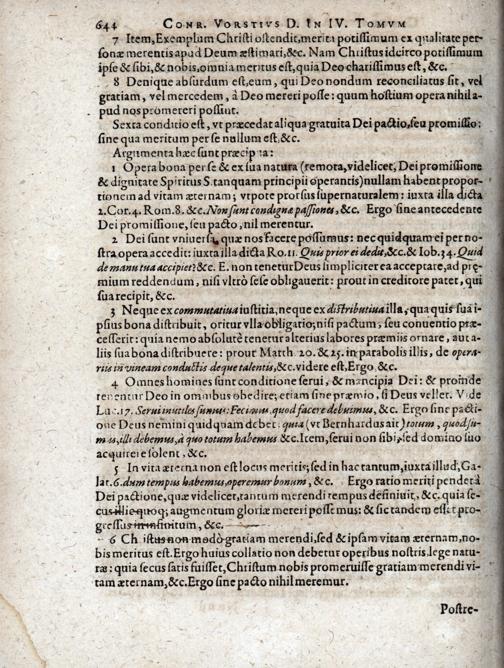 644 CONR. VORSTIVS D. IN IV. TOMVM
7 Item, Exemplum Christi ostendit, meriti potissimum ex qualitate per-
sonæ merentis apud Deum æstimari, &c. Nam Christus idcirco potissimum
ipse & sibi, & nobis, omnia meritus est, quia Deo charissimus est, &c.
8 Denique absurdum est, eum, qui Deo nondum reconciliatus sit, vel
gratiam, vel mercedem, à Deo mereri posse: quum hostium opera nihil a-
pud nos promereri possint.
Sexta conditio est, vt præcedat aliqua gratuita Dei pactio, seu promissio:
sine qua meritum per se nullum est, &c.
Argumenta hæc sunt præcipua:
1 Opera bona per se & ex sua natura (remota, videlicet, Dei promissione
& dignitate Spiritus S. tanquam principii operantis) nullam habent propor-
tionem ad vitam æternam; vtpote prorsus supernaturalem: iuxta illa dicta
2. Cor. 4. Rom. 8. &c. Non sunt condignæ passiones, &c. Ergo sine antecedente
Dei promissione, seu pacto, nil merentur.
2 Dei sunt vniversa, quæ nos facere possumus: nec quidquam ei per no-
stra opera accedit: iuxta illa dicta Ro. 11. Quis prior ei dedit, &c. & Iob. 34. Quid
de manu tua accipiet? &c. E. non tenetur Deus simpliciter ea acceptare, ad præ-
mium reddendum, nisi vltrò sese obligauerit: prout in creditore patet, qui
sua recipit, &c.
3 Neque ex commutatiua iustitia, neque ex distributiua illa, qua quis sua i-
psius bona distribuit, oritur vlla obligatio; nisi pactum, seu conuentio præ-
cesserit: quia nemo absolutè tenetur alterius labores præmiis ornare, aut a-
liis sua bona distribuere: prout Matth. 20. & 25. in parabolis illis, de opera-
riis in vineam conductis deque talentis, &c. videre est, Ergo, &c.
4 Omnes homines sunt conditione serui, & mancipia Dei: & proinde
tenentur Deo in omnibus obedire; etiam sine præmio, si Deus vellet. Vide
Luc. 17. Serui inutiles sumus: Fecimus, quod facere debuimus, &c. Ergo sine pacti-
one Deus nemini quidquam debet: quia (vt Bernhardus ait) totum, quod su-
mus, illi debemus, à quo totum habemus &c. Item, serui non sibi, sed domino suo
acquirere solent, &c.
5 In vita æterna non est locus meritis; sed in hac tantum, iuxta illud, Ga-
lat. 6. dum tempus habemus, operemur bonum, &c. Ergo ratio meriti pendet à
Dei pactione, quæ videlicet, tantum merendi tempus definiuit, &c. quia se-
cus illic quoq; augmentum gloriæ mereri possemus: & sic tandem esset pro-
gressus in infinitum, &c.
6 Christus non modò gratiam merendi, sed & ipsam vitam æternam, no-
bis meritus est. Ergo huius collatio non debetur operibus nostris. lege natu-
ræ: quia secus satis fuisset, Christum nobis promeruisse gratiam merendi vi-
tam æternam, &c. Ergo sine pacto nihil meremur.
Postre-